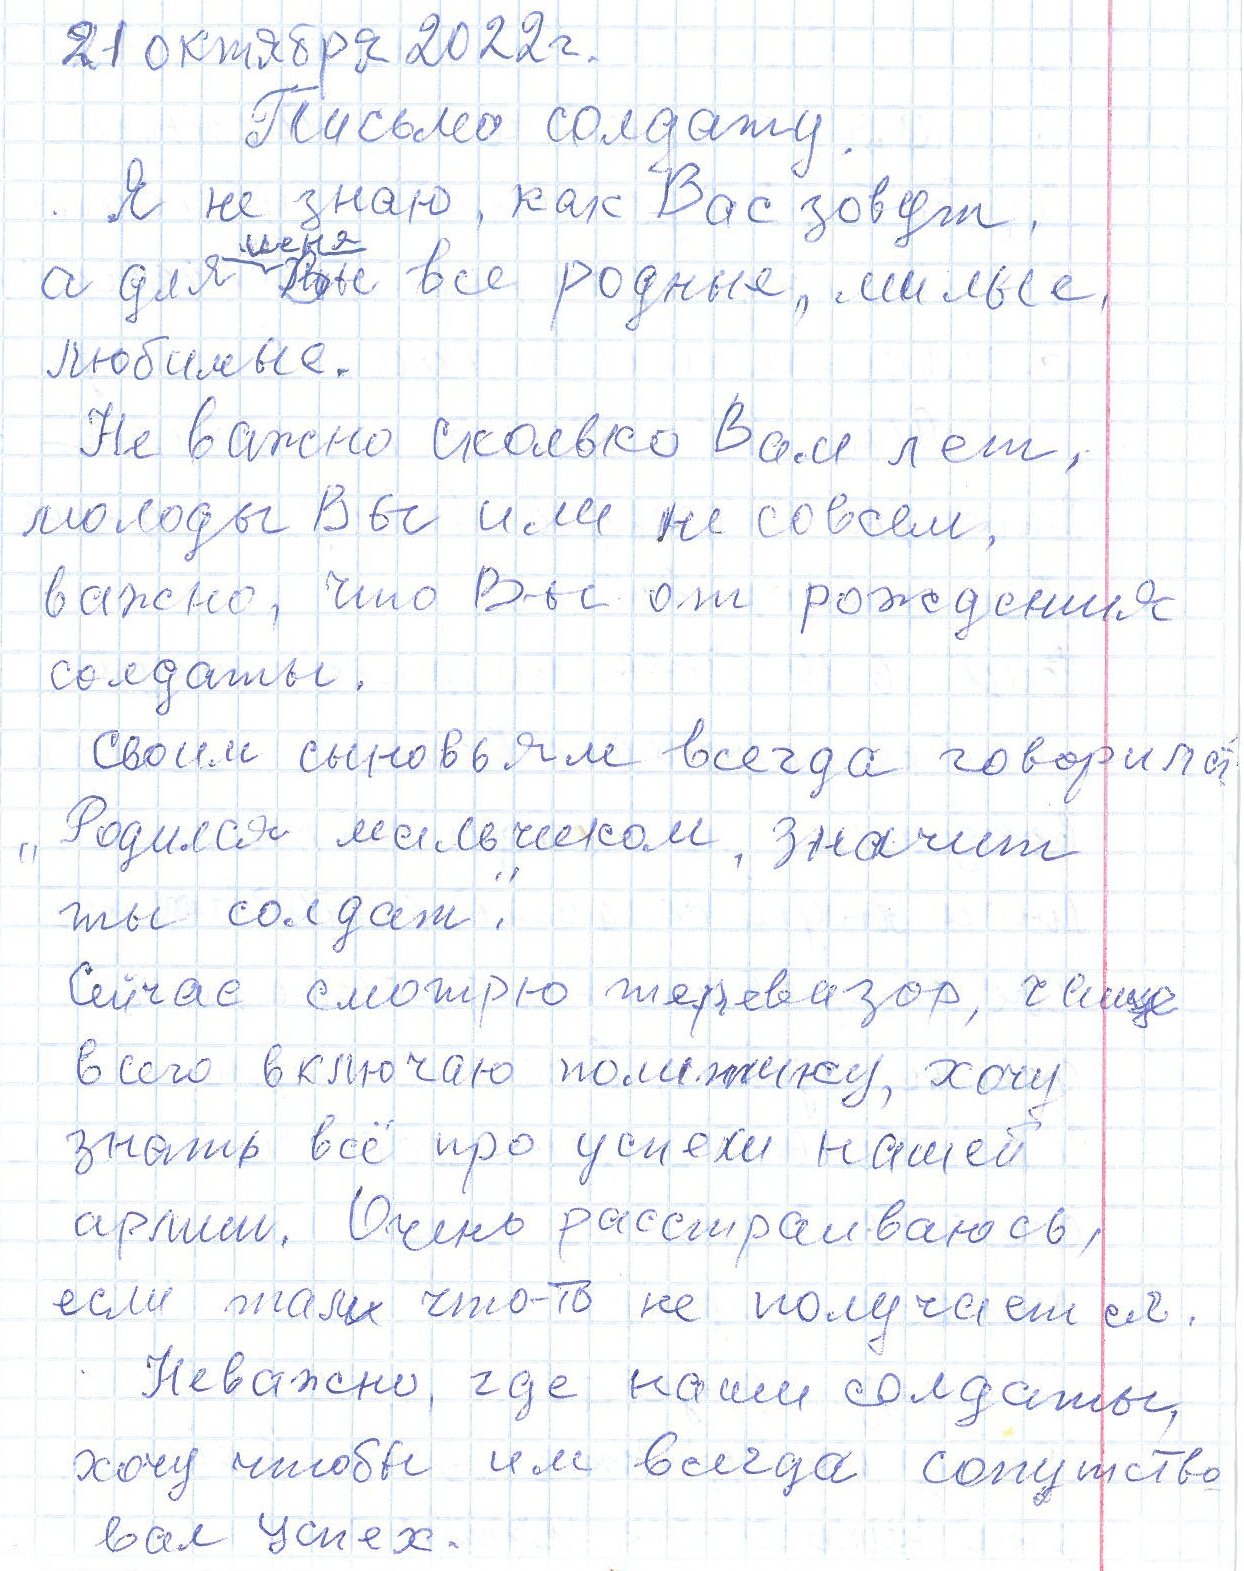 21 октября 2022г.
Письмо солдату.
Я не знаю, как Вас зовут,
меня
а для Вы все родные, милые,
любимые.
Не важно сколько Вам лет,
молоды Вы или не совсем,
важно, что Вы от рождения
солдаты.
Своим сыновьям всегда говорила:
„Родился мальчиком, значит
ты солдат".
Сейчас смотрю телевизор, чаще
всего включаю политику, хочу
знать всё про успехи нашей
армии. Очень расстраиваюсь,
если там что-то не получается.
Неважно, где наши солдаты,
хочу чтобы им всегда сопутство
вал успех.